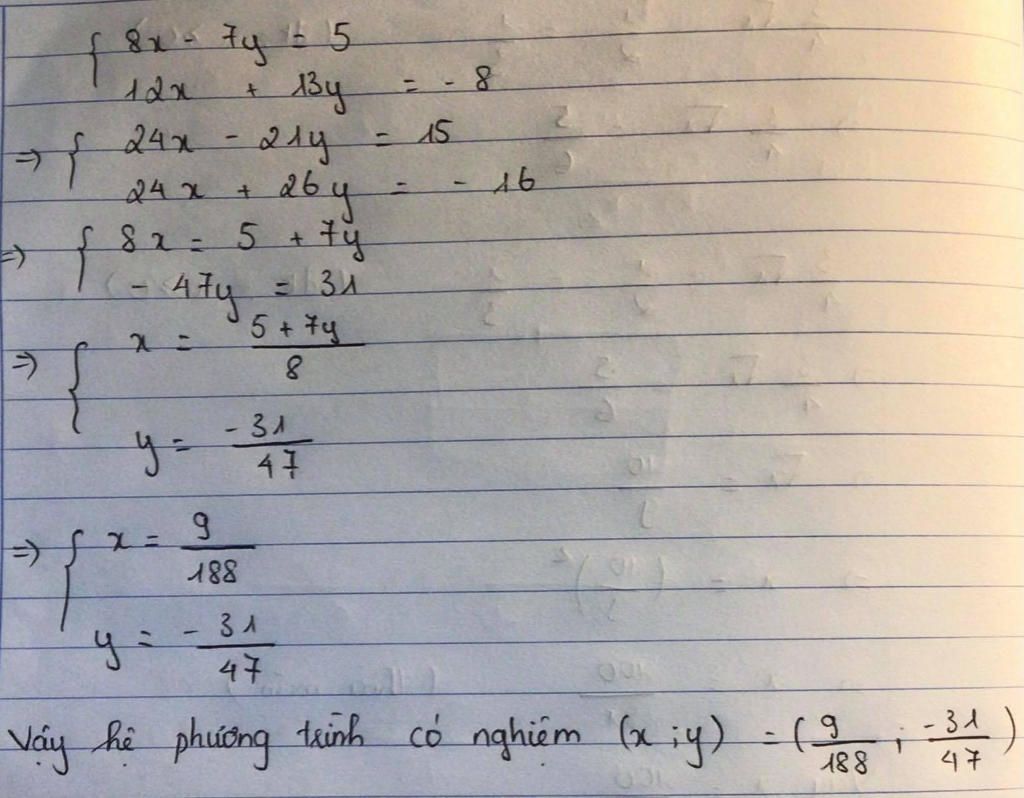 { 8x - 7y = 5
12x + 13y = - 8
=> { 24x - 21y = 15
24x + 26y = - 16
=> { 8x = 5 + 7y
- 47y = 31
=> { x = \frac{5 + 7y}{8}
y = \frac{-31}{47}
=> { x = \frac{9}{188}
y = \frac{-31}{47}
Vậy hệ phương trình có nghiệm (x ; y) = (\frac{9}{188} ; \frac{-31}{47})